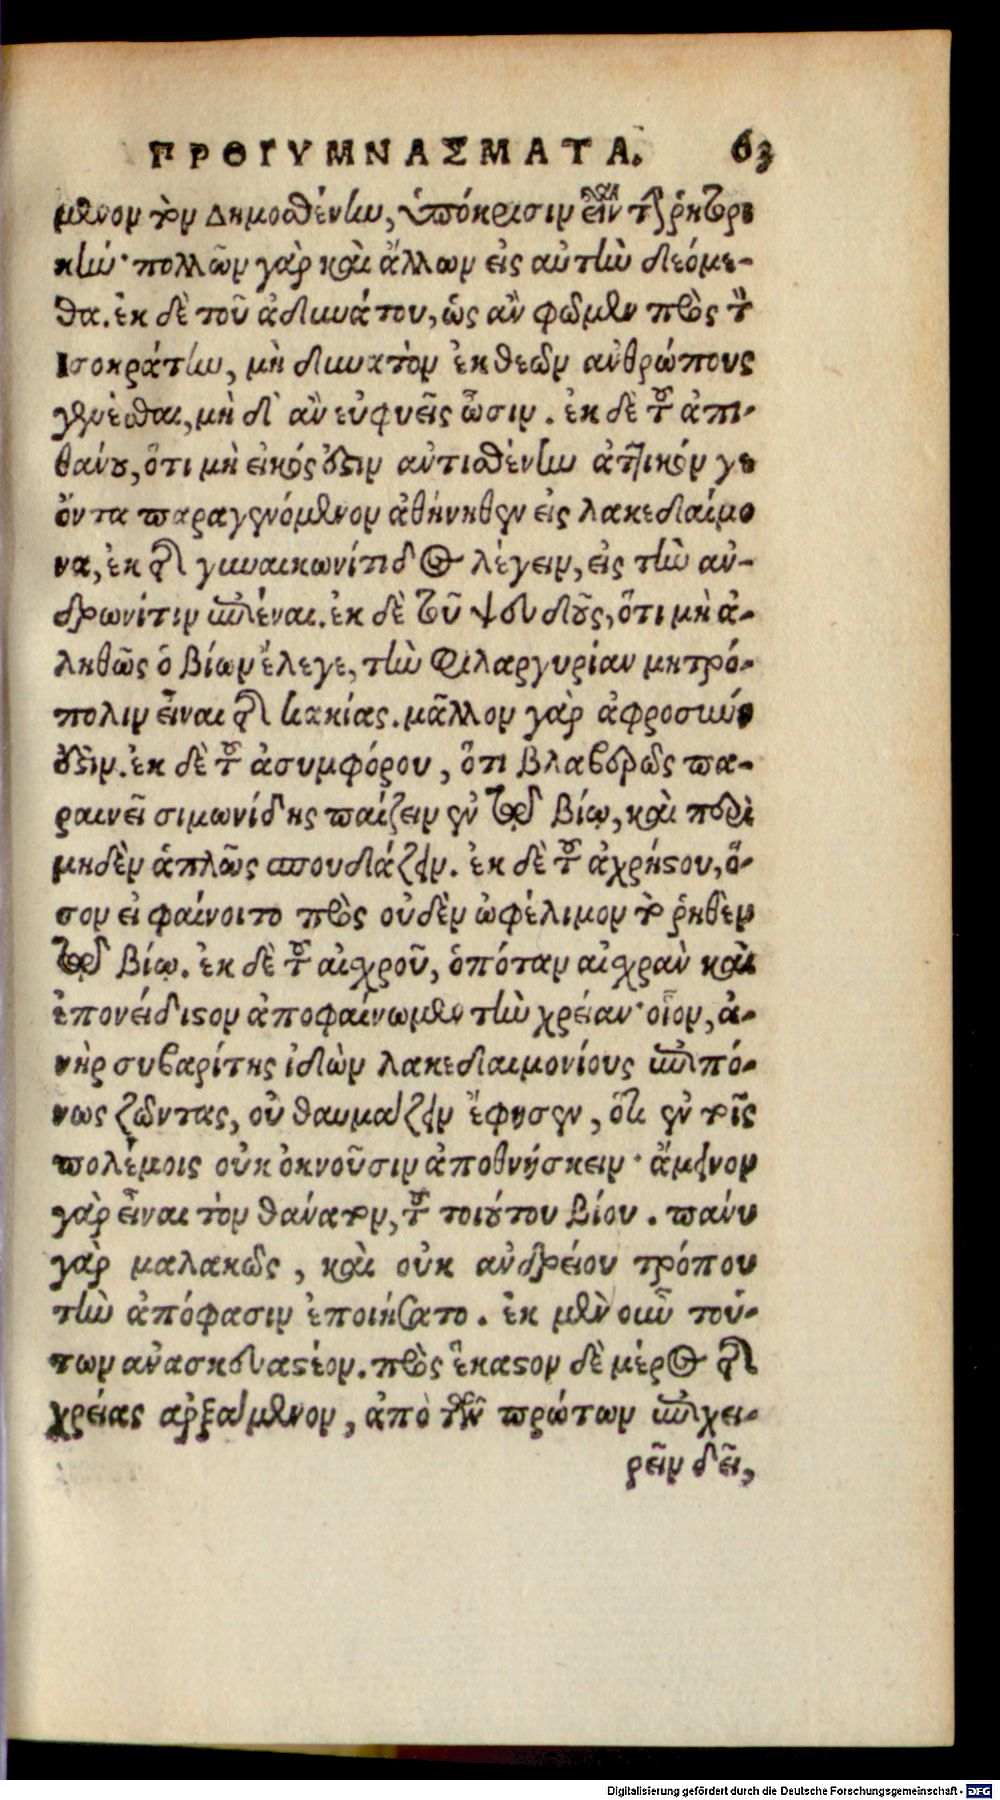 ΠΡΟΓΥΜΝΑΣΜΑΤΑ. 63
μενον τὸν Δημοσθένην, ὑπόκρισιν εἶναι τὴν ῥητορι
κήν· πολλῶν γὰρ καὶ ἄλλων εἰς αὐτὴν δεόμε-
θα. ἐκ δὲ τοῦ ἀδυνάτου, ὡς ἂν φῶμεν πρὸς τὸν
Ισοκράτην, μὴ δυνατὸν ἐκ θεῶν ἀνθρώπους
γενέσθαι, μὴ δ' ἂν εὐφυεῖς ὦσιν. ἐκ δὲ τοῦ ἀπι-
θάνου, ὅτι μὴ εἰκός ἐστιν αὐτισθένην ἀττικόν γε
ὄντα παραγενόμενον ἀθήνηθεν εἰς λακεδαίμο
να, ἐκ τῆς γυναικωνίτιδος λέγειν, εἰς τὴν ἀν-
δρωνίτιν ἐπιέναι. ἐκ δὲ τοῦ ψευδοῦς, ὅτι μὴ ἀ-
ληθῶς ὁ βίων ἔλεγε, τὴν φιλαργυρίαν μητρό-
πολιν εἶναι τῆς κακίας. μᾶλλον γὰρ ἀφροσύνη
ἐστιν. ἐκ δὲ τοῦ ἀσυμφόρου, ὅτι βλαβερῶς πα-
ραινεῖ σιμωνίδης παίζειν ἐν τῷ βίῳ, καὶ περὶ
μηδὲν ἁπλῶς σπουδάζειν. ἐκ δὲ τοῦ ἀχρήστου, ὅ-
σον εἰ φαίνοιτο πρὸς οὐδὲν ὠφέλιμον τὸ ῥηθὲν
τῷ βίῳ. ἐκ δὲ τοῦ αἰσχροῦ, ὁπόταν αἰσχρὰν καὶ
ἐπονείδιστον ἀποφαίνωμεν τὴν χρείαν· οἷον, ἀ-
νὴρ συβαρίτης ἰδὼν λακεδαιμονίους ἐπιπό-
νως ζῶντας, οὐ θαυμάζειν ἔφησεν, ὅτι ἐν τοῖς
πολέμοις οὐκ ὀκνοῦσιν ἀποθνήσκειν· ἄμεινον
γὰρ εἶναι τὸν θάνατον, τοῦ τοιούτου βίου. πάνυ
γὰρ μαλακῶς, καὶ οὐκ ἀνδρείου τρόπου
τὴν ἀπόφασιν ἐποιήσατο. ἐκ μὲν οὖν τού-
των ἀνασκευαστέον. πρὸς ἕκαστον δὲ μέρος τῆς
χρείας ἀρξάμενον, ἀπὸ τῶν πρώτων ἐπιχει-
ρεῖν δεῖ,
Digitalisierung gefördert durch die Deutsche Forschungsgemeinschaft - DFG